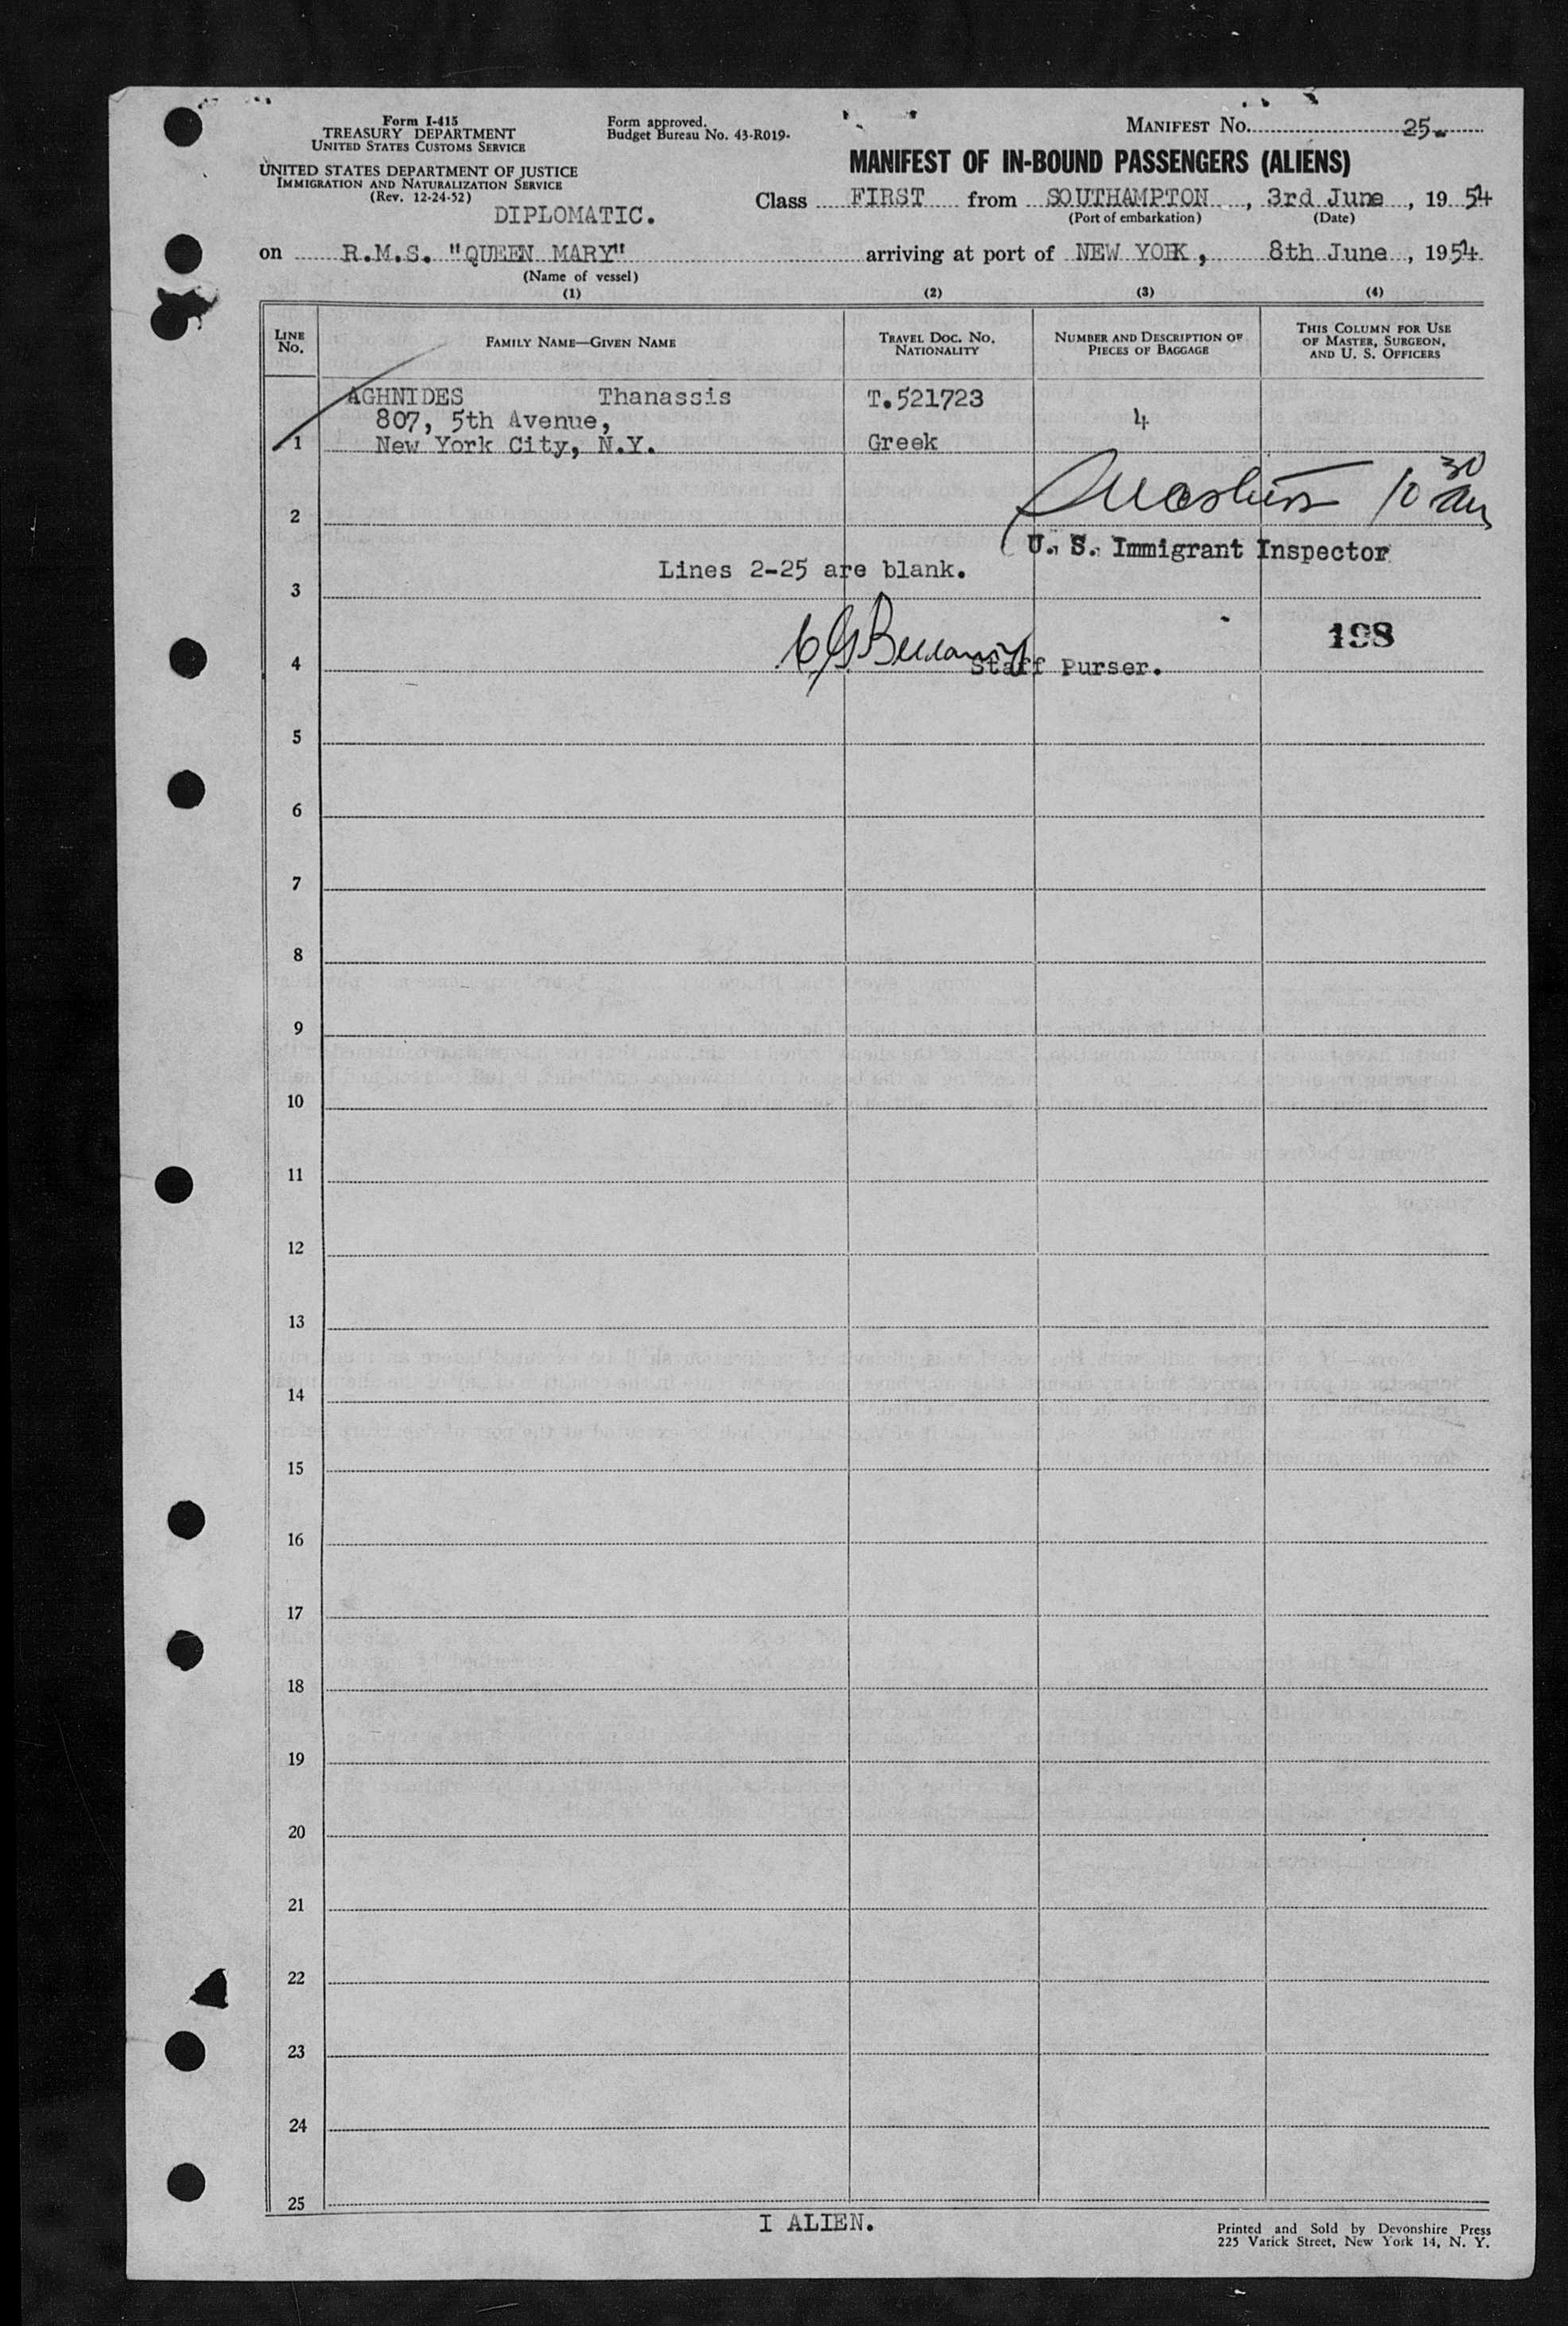 Form I-415
TREASURY DEPARTMENT
UNITED STATES CUSTOMS SERVICE
UNITED STATES DEPARTMENT OF JUSTICE
IMMIGRATION AND NATURALIZATION SERVICE
(Rev. 12-24-52)
DIPLOMATIC.
Form approved.
Budget Bureau No. 43-R019-
MANIFEST No. 25.
MANIFEST OF IN-BOUND PASSENGERS (ALIENS)
Class FIRST from SOUTHAMPTON, 3rd June, 1954
(Port of embarkation) (Date)
on R.M.S. "QUEEN MARY" arriving at port of NEW YORK, 8th June, 1954
(Name of vessel)
(1) (2) (3) (4)
LINE No. FAMILY NAME—GIVEN NAME TRAVEL DOC. NO. NATIONALITY NUMBER AND DESCRIPTION OF PIECES OF BAGGAGE THIS COLUMN FOR USE OF MASTER, SURGEON, AND U. S. OFFICERS
AGHNIDES Thanassis T.521723
807, 5th Avenue, 4
1 New York City, N.Y. Greek
10 30 am
2
U. S. Immigrant Inspector
Lines 2-25 are blank.
3
198
4 Staff Purser.
5
6
7
8
9
10
11
12
13
14
15
16
17
18
19
20
21
22
23
24
25
I ALIEN.
Printed and Sold by Devonshire Press
225 Varick Street, New York 14, N. Y.